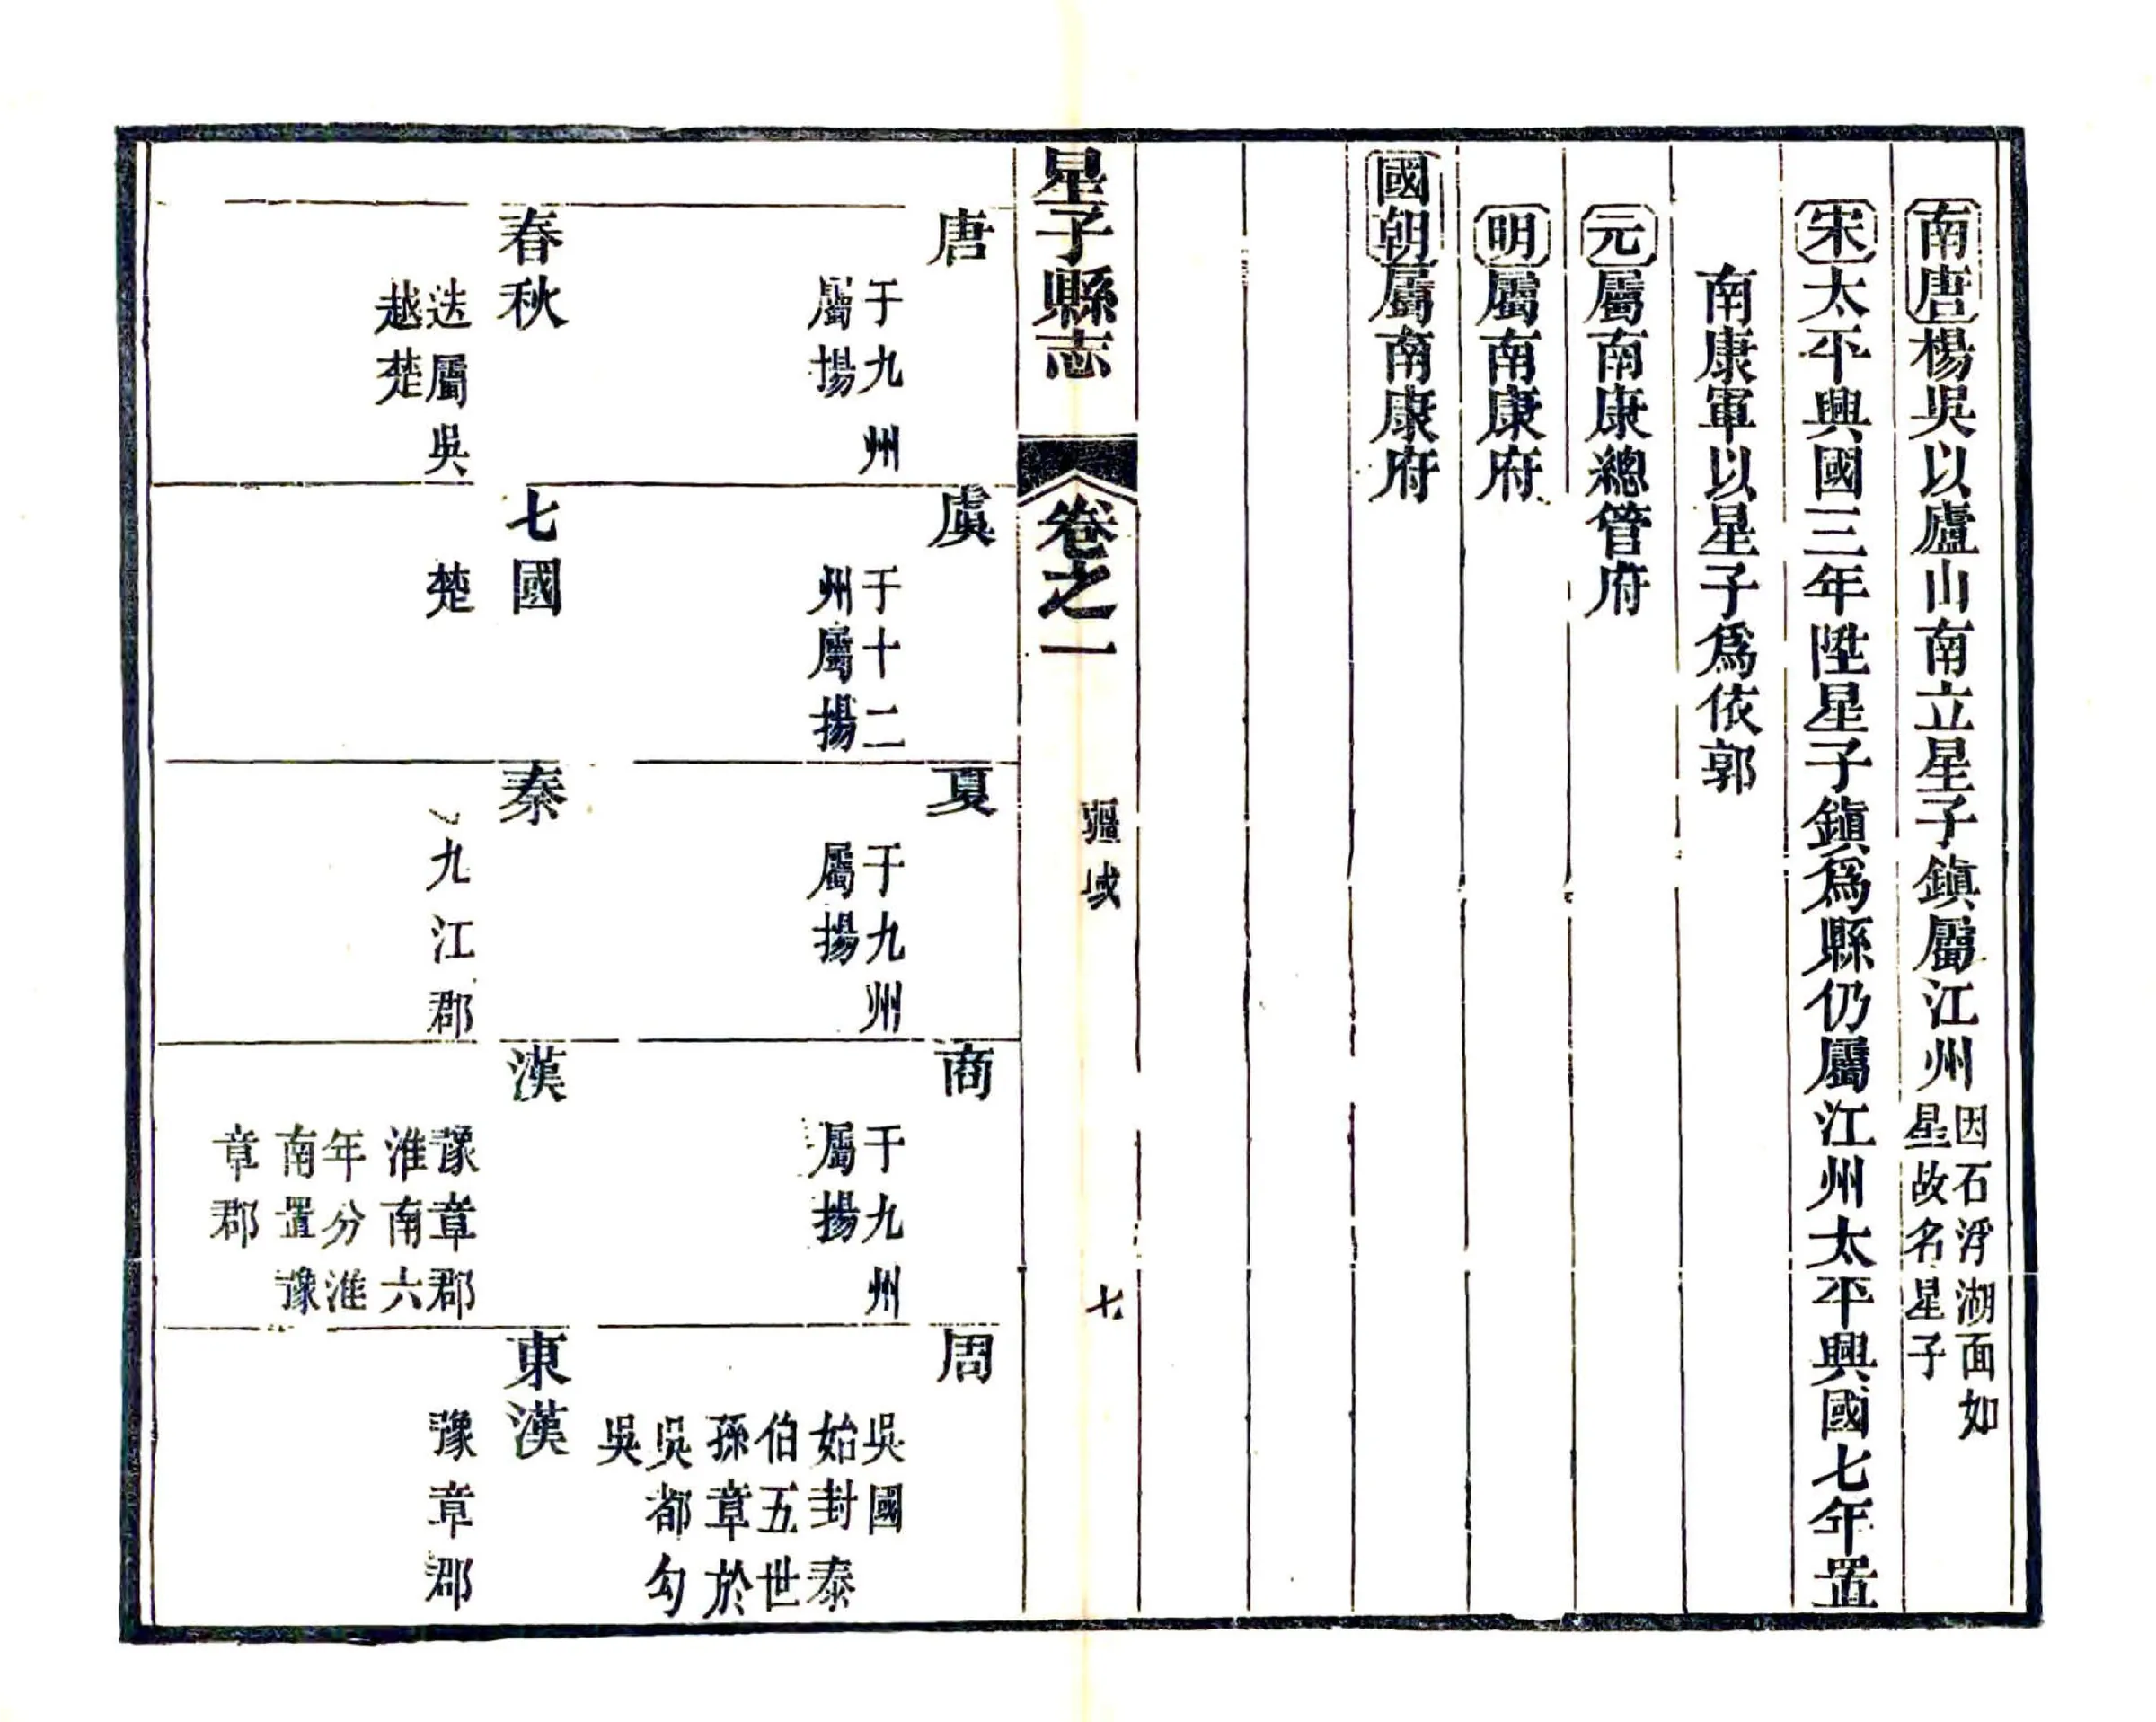 南唐楊吳以廬山南立星子鎮屬江州因石浮湖面如星故名星子
宋太平興國三年陞星子鎮爲縣仍屬江州太平興國七年置
南康軍以星子爲依郭
元屬南康總管府
明屬南康府
國朝屬南康府
星子縣志
卷之一
疆域
七
唐
于九州
屬揚
虞
于十二
州屬揚
夏
于九州
屬揚
商
于九州
屬揚
周
吳國
始封泰
伯五世
孫章於
吳都勾
吳
春秋
迭屬吳
越楚
七國
楚
秦
九江郡
漢
豫章郡
淮南六
年分淮
南置豫
章郡
東漢
豫章郡